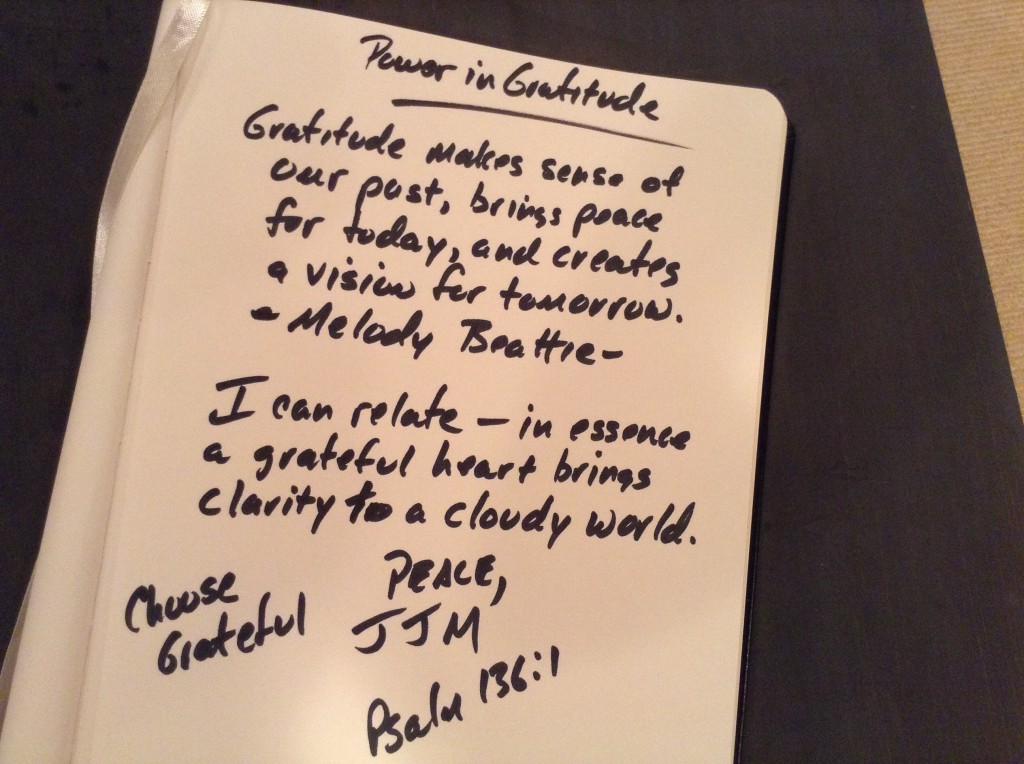 Power in Gratitude
Gratitude makes sense of
our past, brings peace
for today, and creates
a vision for tomorrow.
- Melody Beattie -
I can relate — in essence
a grateful heart brings
clarity to a cloudy world.
PEACE,
JJM
Choose
Grateful
Psalm 136:1